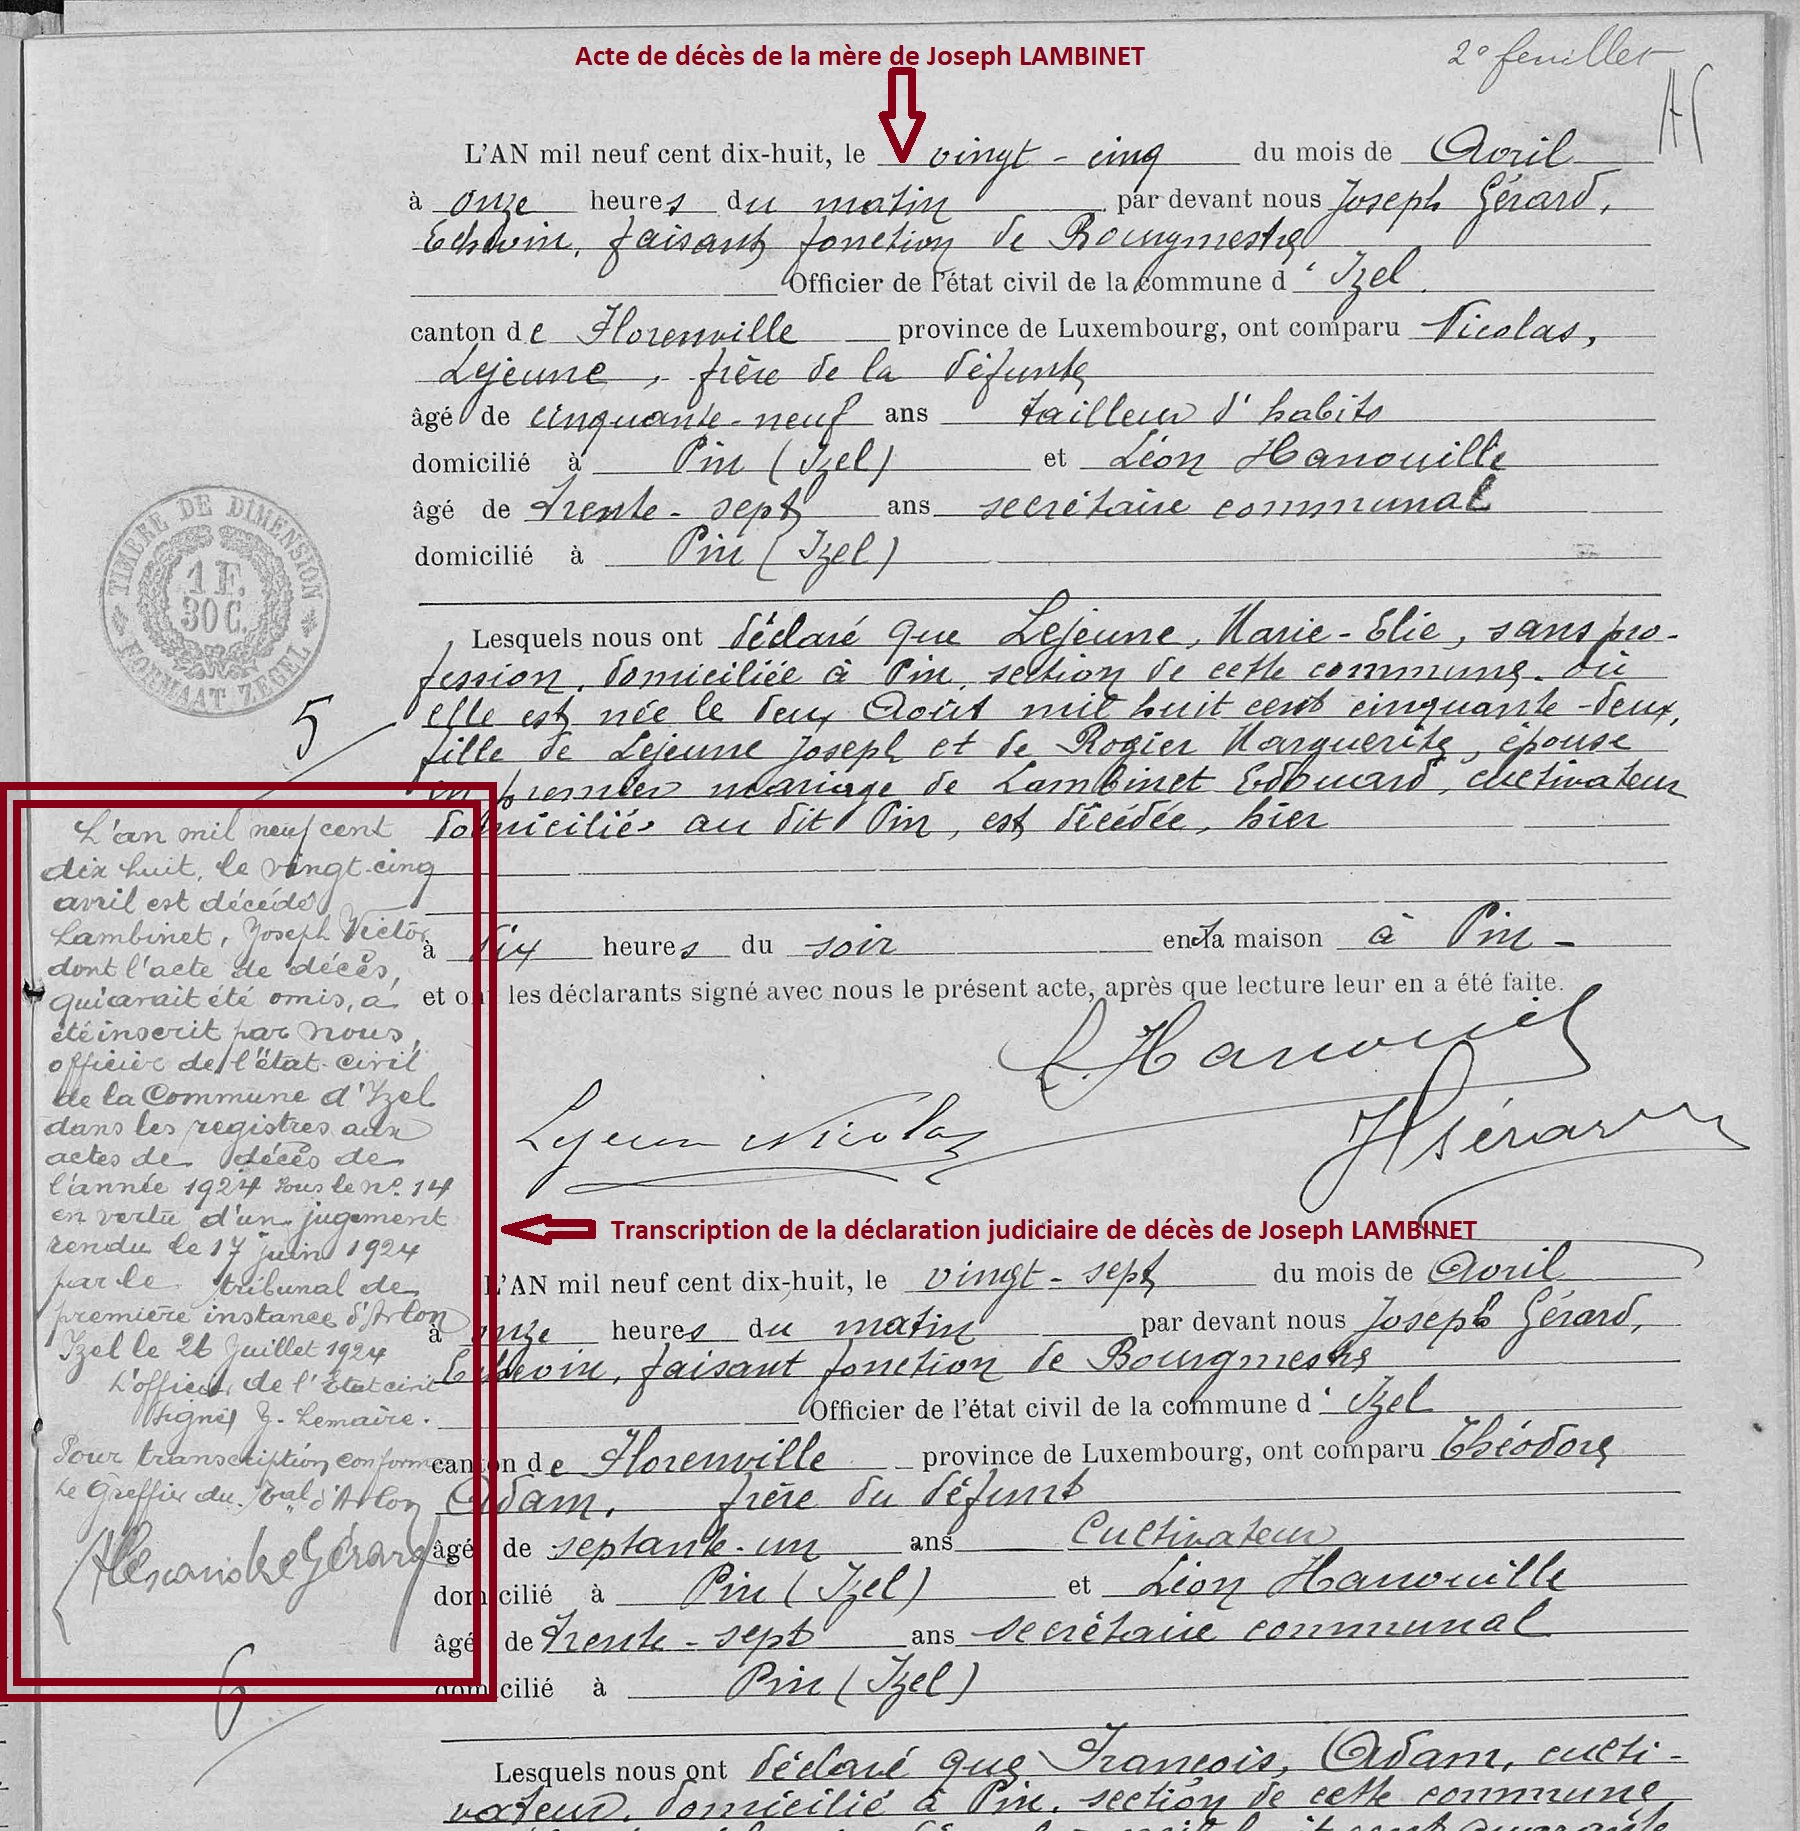 Acte de décès de la mère de Joseph LAMBINET
2e feuillet
L'AN mil neuf cent dix-huit, le vingt-cinq du mois de Avril
à onze heures du matin par devant nous Joseph Gérard,
Echevin, faisant fonction de Bourgmestre
Officier de l'état civil de la commune d'Izel.
canton de Florenville province de Luxembourg, ont comparu Nicolas,
Lejeune, frère de la défunte
âgé de cinquante-neuf ans tailleur d'habits
domicilié à Pin (Izel) et Léon Hanouille
âgé de trente-sept ans secrétaire communal
domicilié à Pin (Izel)
TIMBRE DE DIMENSION
1 F.
30 C.
FORMAAT ZEGEL
Lesquels nous ont déclaré que Lejeune, Marie-Elie, sans pro-
fession, domiciliée à Pin, section de cette commune, où
elle est née le deux Août mil huit cent cinquante-deux,
fille de Lejeune Joseph et de Rogier Marguerite, épouse
en premier mariage de Lambinet Edouard, cultivateur
domicilié au dit Pin, est décédée, hier
5
à six heures du soir en la maison à Pin -
et ont les déclarants signé avec nous le présent acte, après que lecture leur en a été faite.
L. Hanouil
Lejeune Nicolas
J Gérard
L'an mil neuf cent
dix huit, le vingt-cinq
avril est décédé
Lambinet, Joseph Victor
dont l'acte de décès,
qui avait été omis, a
été inscrit par nous,
officier de l'état-civil
de la Commune d'Izel
dans les registres aux
actes de décès de
l'année 1924 sous le no. 14
en vertu d'un jugement
rendu le 17 juin 1924
par le tribunal de
première instance d'Arlon
Izel le 26 Juillet 1924
L'officier de l'Etat civil
signé J. Lemaire.
Pour transcription conforme
Le Greffier du Tal d'Arlon
Alexandre Gérard
Transcription de la déclaration judiciaire de décès de Joseph LAMBINET
L'AN mil neuf cent dix-huit, le vingt-sept du mois de Avril
à onze heures du matin par devant nous Joseph Gérard,
Echevin, faisant fonction de Bourgmestre
Officier de l'état civil de la commune d'Izel
canton de Florenville province de Luxembourg, ont comparu Théodore
Adam, frère du défunt
âgé de septante-un ans Cultivateur
domicilié à Pin (Izel) et Léon Hanouille
âgé de trente-sept ans secrétaire communal
domicilié à Pin (Izel)
6
Lesquels nous ont déclaré que François, Adam, culti-
vateur, domicilié à Pin, section de cette commune,